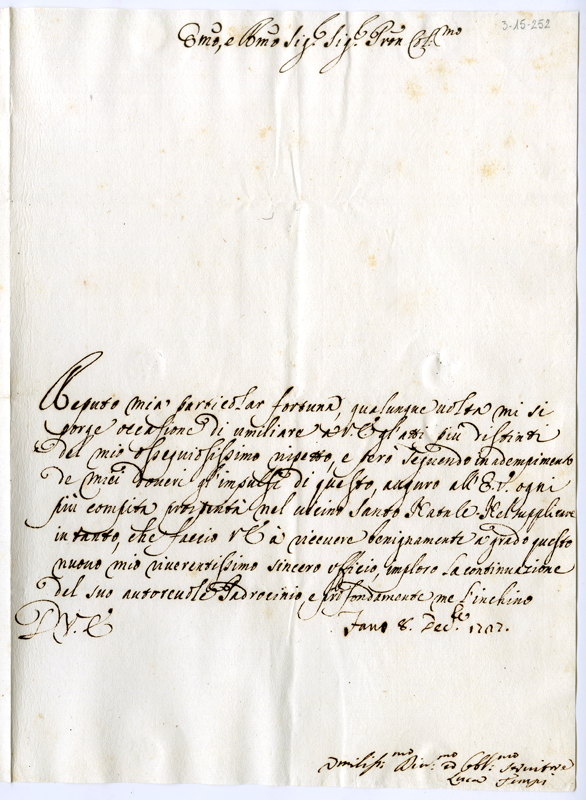 3-15-252
Emo, e Rmo Sig.r Sig.r Pron Col.mo
Reputo mia particolar fortuna, qualunque uolta mi si
porge occasione di umiliare a V. E. gl'atti più distinti
del mio ossequiosissimo rispetto, e però seguendo in adempimento
de miei doueri gl'impulsi di questo, auguro all'E. V. ogni
più compita prosperità nel uicino Santo Natale. Nel supplicare
in tanto, che faccio V. E. à riceuere benignamente à grado questo
nuouo mio riuerentissimo sincero officio, imploro la continuazione
del suo autoreuole Padrocinio, e profondamente me l'inchino
D. V. E.
Fano 8. Dec.bre
Vmiliss.mo Diu.mo ed Obl.mo Seruitore
Luca Tempi